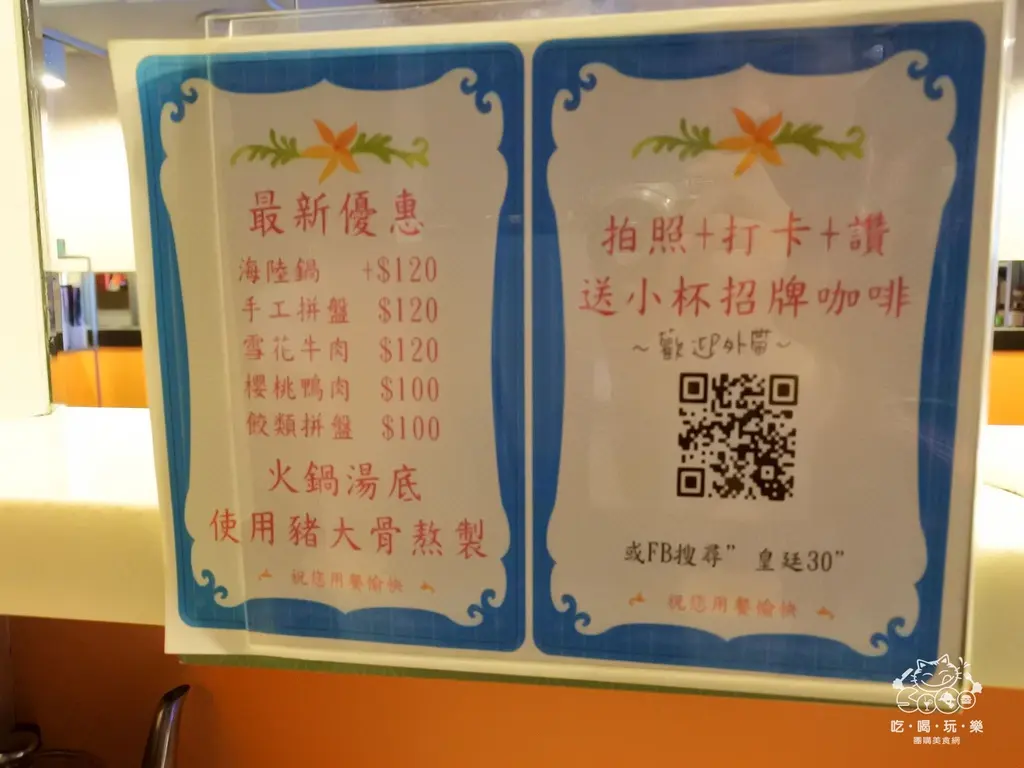 最新優惠
海陸鍋 +$120
手工拼盤 $120
雪花牛肉 $120
櫻桃鴨肉 $100
餃類拼盤 $100
火鍋湯底
使用豬大骨熬製
祝您用餐愉快
拍照+打卡+讚
送小杯招牌咖啡
~歡迎外帶~
或FB搜尋” 皇廷30”
祝您用餐愉快
吃・喝・玩・樂
團購美食網